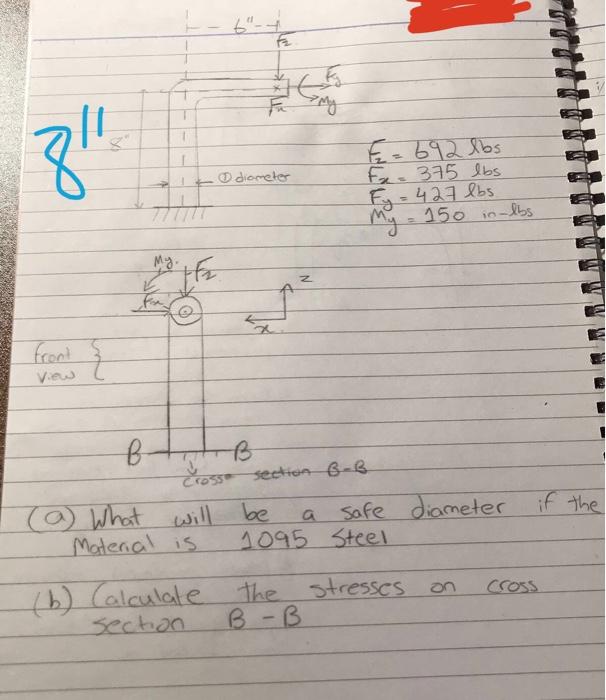 6"
Fz
Fy
Fx
My
8"
8"
① diameter
Fz = 692 lbs
Fx = 375 lbs
Fy = 427 lbs
My = 150 in-lbs
My.
Fz
Fx
z
x
front
view
B
B
Cross section B-B
(a) What will be a safe diameter if the
Material is 1095 Steel
(b) Calculate the stresses on cross
section B-B